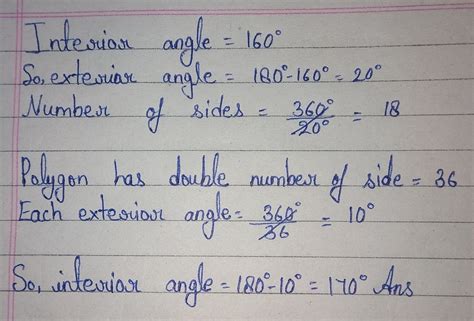 Interior angle = 160°
So, exterior angle = 180°-160° = 20°
Number of sides = 360°/20° = 18
Polygon has double number of side = 36
Each exterior angle = 360°/36 = 10°
So, interior angle = 180°-10° = 170° Ans